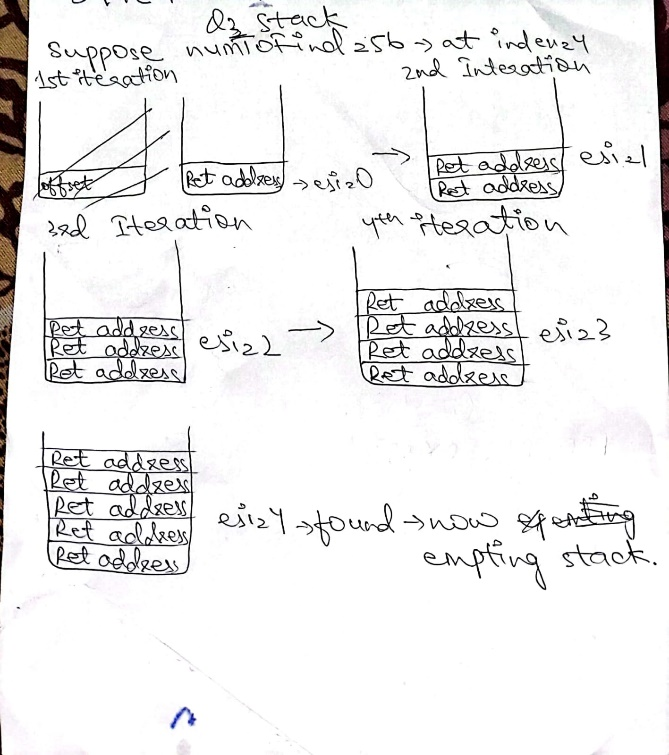 Q2 stack
Suppose numtofind = 56 → at index=4
1st iteration
2nd Interation
offset
Ret address → esi=0 →
Ret address esi=1
Ret address
3rd Iteration
4th iteration
Ret address
Ret address
Ret address
esi=2 →
Ret address
Ret address
Ret address
Ret address
esi=3
Ret address
Ret address
Ret address
Ret address
Ret address
esi=4 → found → now
empting stack.